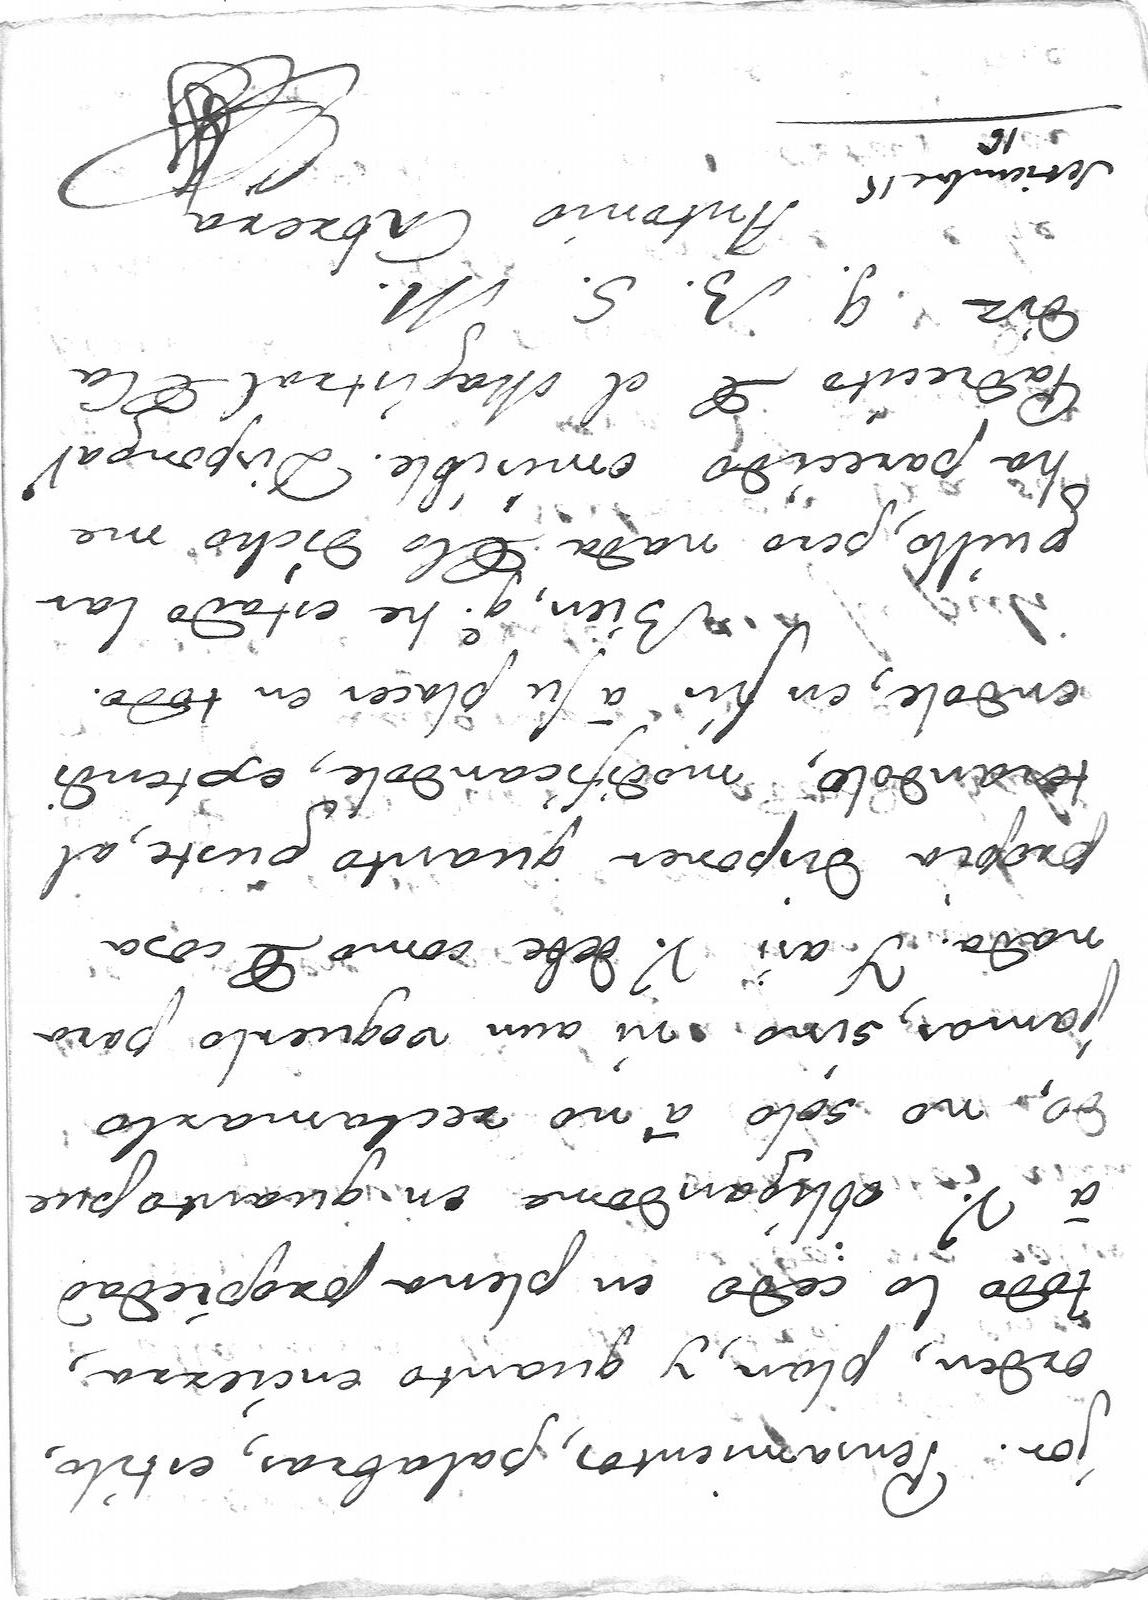 jor. Pensamientos, palabras, estilo,
orden, plan, y quanto encierra,
todo lo cedo en plena propiedad
à V. obligandome en quanto pue
do, no solo à no reclamarlo
jamas, sino ni aun moverlo para
nada. Y asi V. debe como de cosa
propia disponer quanto guste, al
terandolo, modificandole, extendi
endole, en fin à su placer en todo.
Bien, q.e he estado lar
guillo, pero nada de lo dicho me
ha parecido omisible. Disponga
Padrecito de el Magistral de la
q. B. S. M.
Antonio Cabrera
Setiembre 15
16